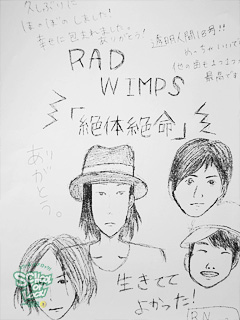 久しぶりに
ほっこりしました!
幸せに包まれました。
ありがとう!
透明人間18号!!
めっちゃいいで
他の曲も
最高です
RAD
WIMPS
「絶体絶命」
ありがとう。
生きてて
よかった!
R.N